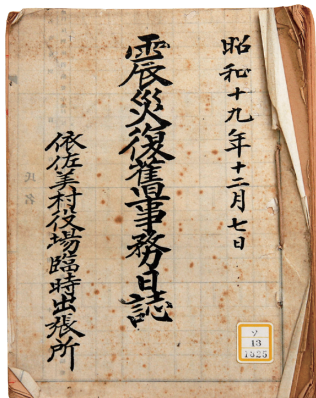 昭和十九年十二月七日
震災復舊事務日誌
依佐美村役場臨時出張所
氏名
Y
13
1525